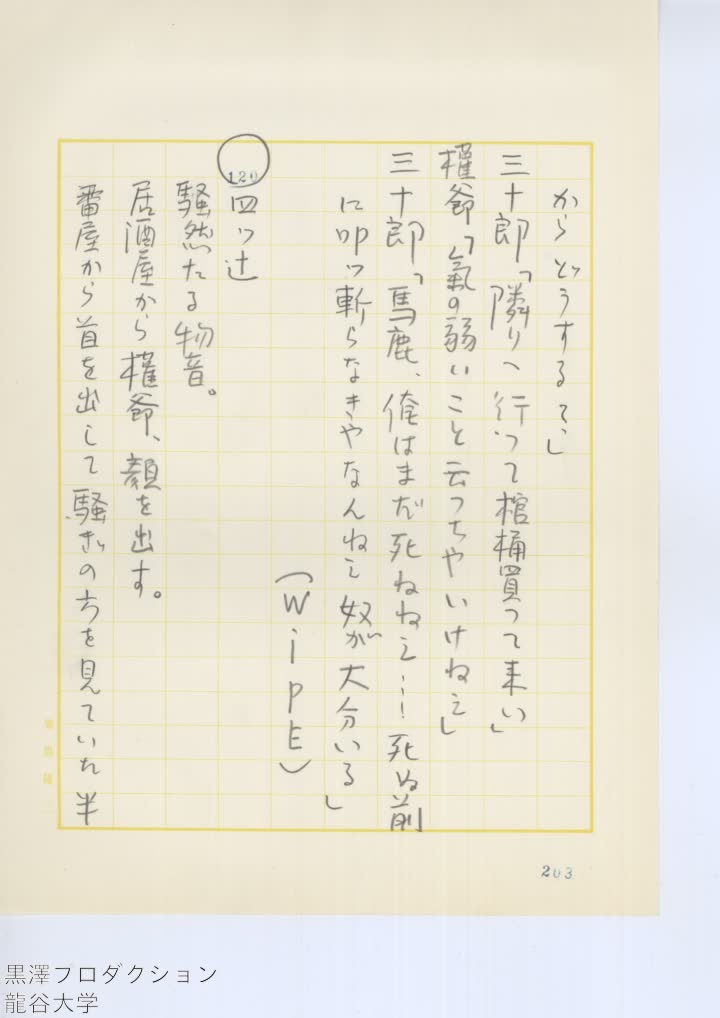 からどうするて」
三十郎「隣りへ行って棺桶買って来い」
権爺「氣の弱いこと云っちゃいけねえ」
三十郎「馬鹿、俺はまだ死ねねえ…！死ぬ前
に叩ッ斬らなきやなんねえ奴が大分いる」
（WipE）
120
四ツ辻
騒然たる物音。
居酒屋から権爺、顔を出す。
番屋から首を出して騒ぎの方を見ていた半
203
黒澤プロダクション
龍谷大学